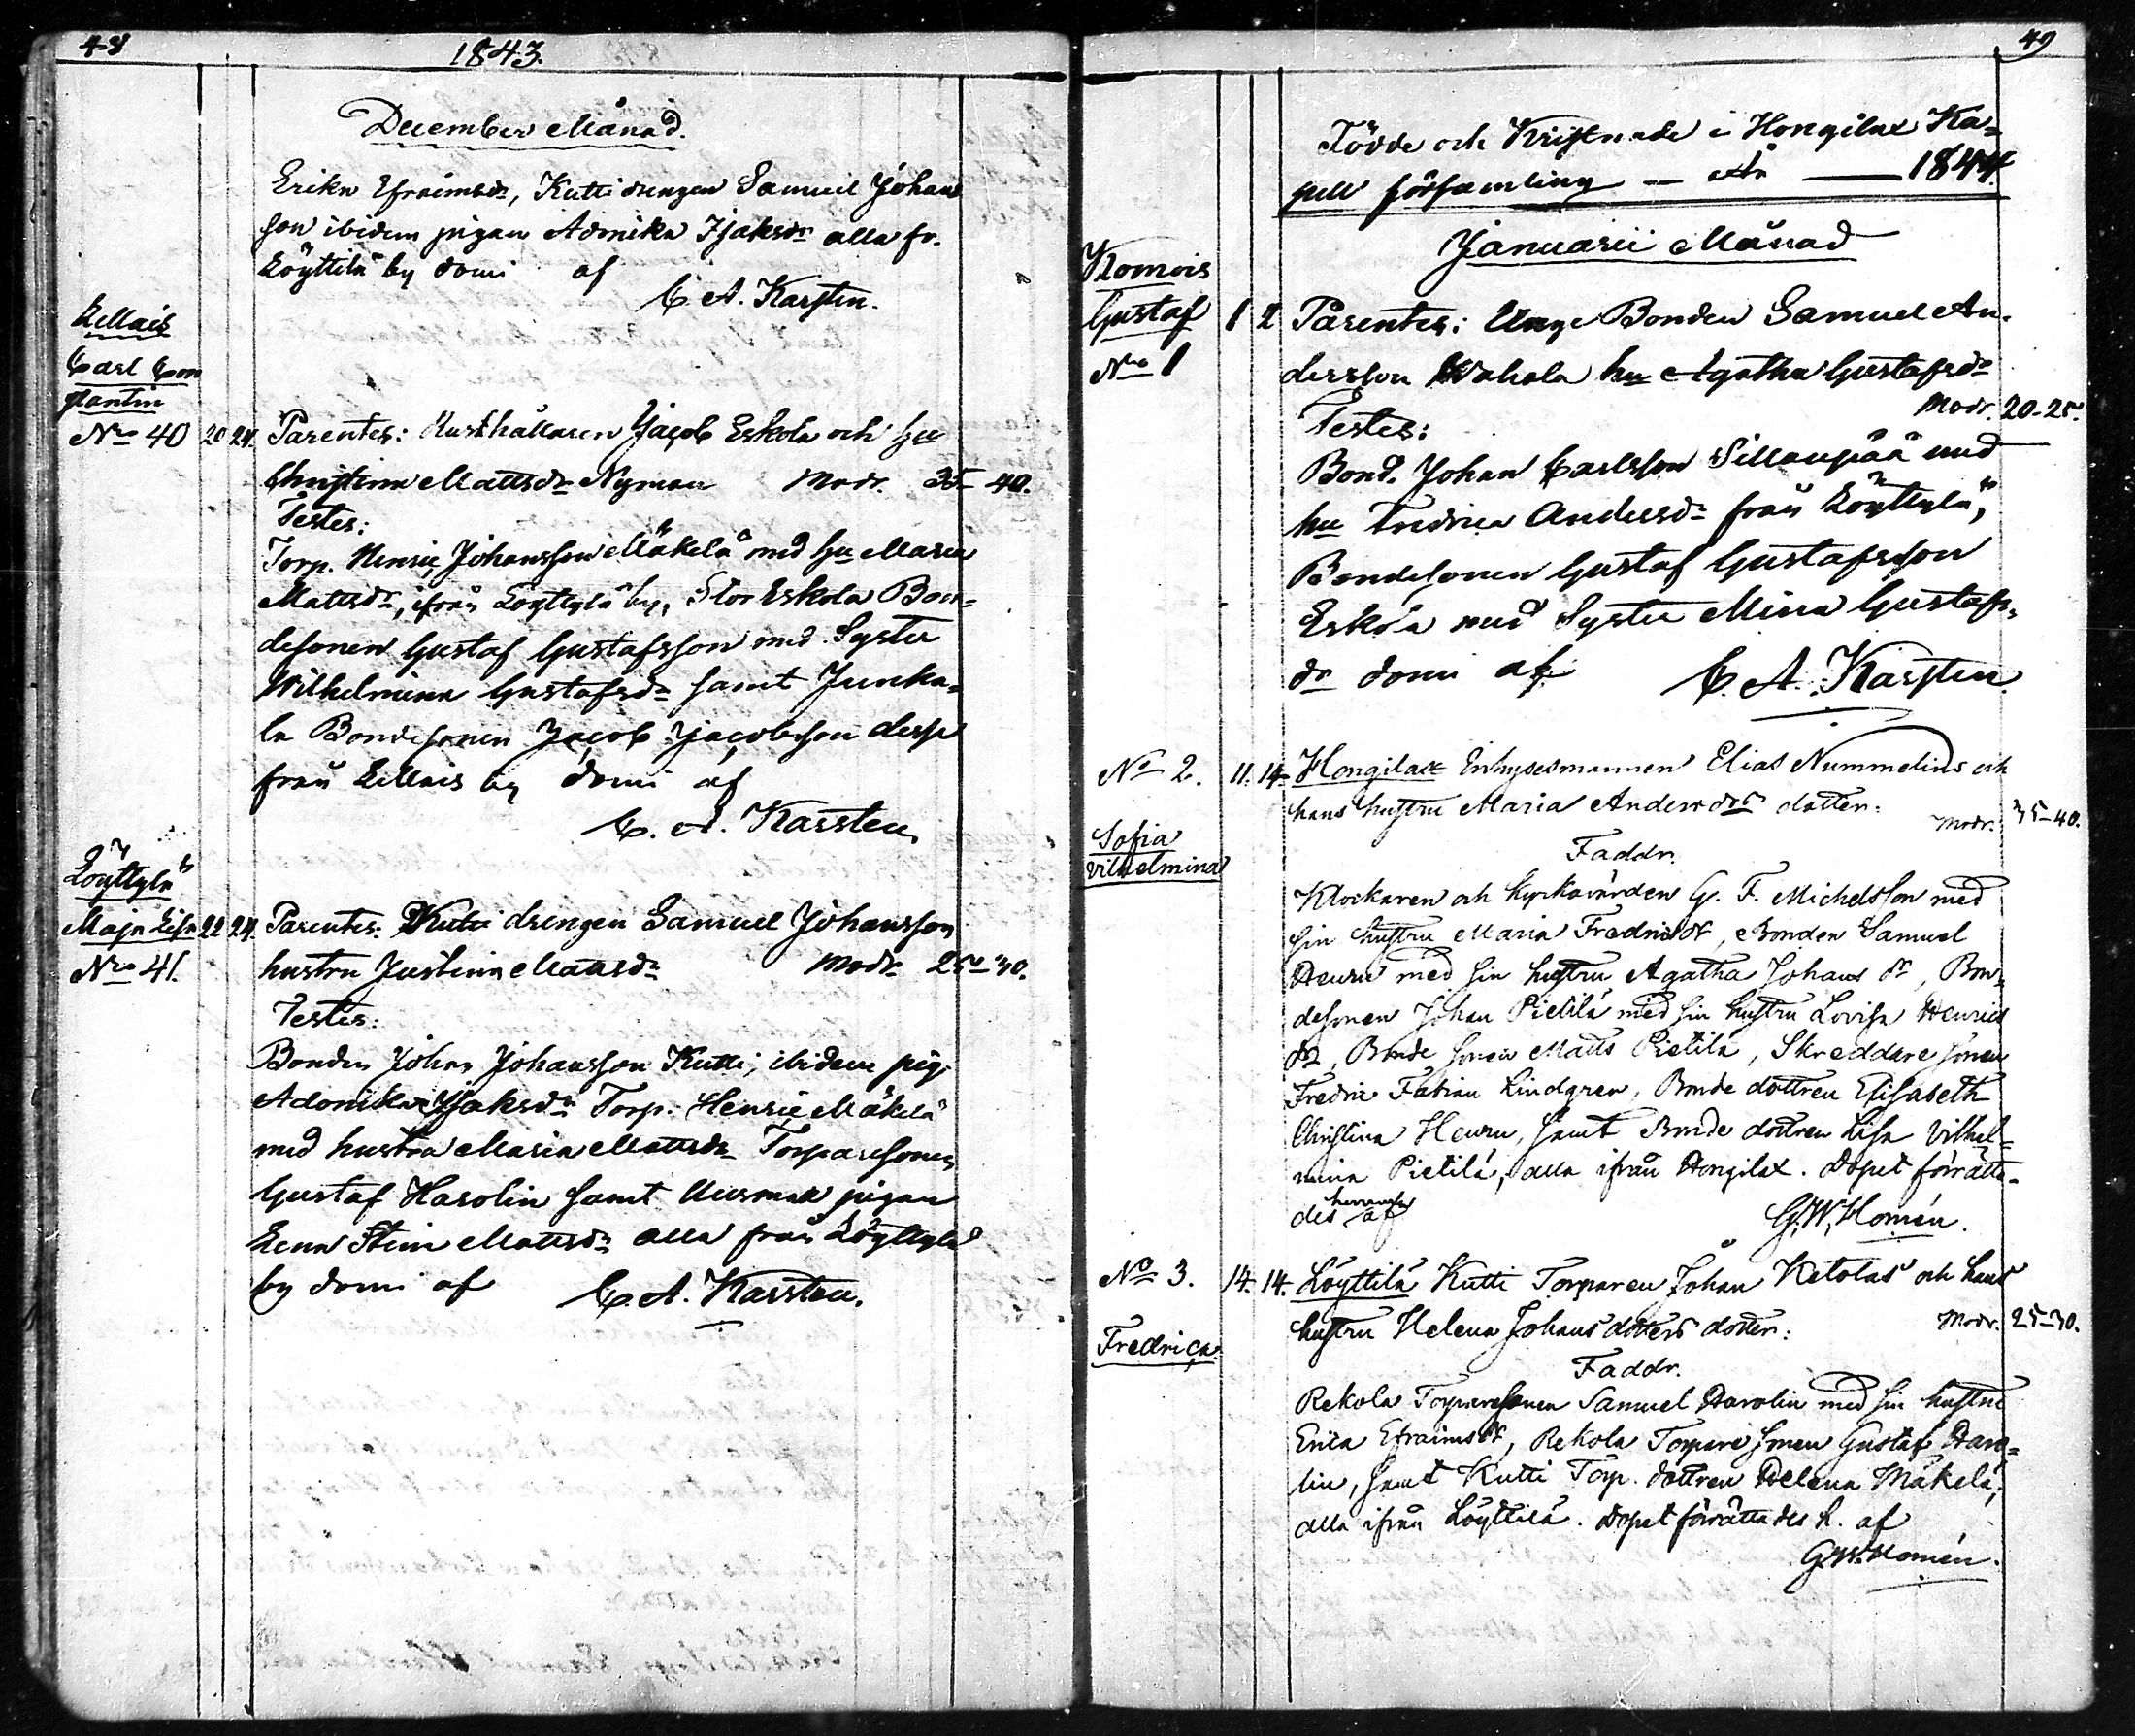 48
1843.
December Månad.
Erika Efraimsdr, Kutti drengen Samuel Johan
son ibidem pigan Adonika Isaksdr alla fr.
Löyttilä by domi af
C. A. Karsten.
Lellais
Carl Con
stantin
Nro 40 20 24. Parentes: Rusthållaren Jacob Eskola och hu
Christina Mattsdr Nyman Modr. 35-40.
Testes:
Torp. Henric Johansson Mäkelä med hu Maria
Mattsdr, från Löyttylä by, Stor Eskola Bon=
desonen Gustaf Gustafsson med Syster
Wilhelmina Gustafsdr samt Junka=
la Bondesonen Jacob Jacobsson desse
från Lellais by domi af
C. A. Karsten
Löyttylä
Maja Lisa 22 24. Parentes: Kutti drengen Samuel Johansson
Nro 41. hustru Justina Mattsdr Modr. 25-30.
Testes:
Bonden Johan Johansson Kutti, ibidem pig.
Adonika Isaksdr Torp. Henric Mäkelä
med hustru Maria Mattsdr Torparesonen
Gustaf Harolin samt pigan
Lena Stina Mattsdr alla från Löyttylä
by domi af C. A. Karsten.
49
Födde och Kristnade i Hongilax Ka=
pell församling — År — 1844.
Januarii Månad
Komois
Gustaf 1 2 Parentes: Unge Bonden Samuel An-
Nro 1 dersson Wahala hu Agatha Gustafsdr
Modr. 20-25.
Testes:
Bond. Johan Carlsson Sillanpää med
hu Fredrica Andersdr från Löyttylä,
Bondesonen Gustaf Gustafsson
Eskola med Syster Mina Gustafs=
dr domi af C. A. Karsten
No 2. 11. 14. Hongilax Inhysesmannen Elias Nummelins och
hans hustru Maria Anders drs dotter:
Modr. 35-40.
Sofia
Vilhelmina
Faddr.
Klockaren och kyrkovärden G. F. Michelsson med
sin hustru Maria Fredricsdr, Bonden Samuel
Heuru med sin hustru Agatha Johans dr, Bon=
desonen Johan Pietilä med sin hustru Lovisa Henrics
dr, Bonde sonen Matts Pietilä, Skreddare sonen
Fredric Fabian Lindgren, Bonde dottren Elisabeth
Christina Heuru, samt Bonde dottren Lisa Vilhel=
mina Pietilä, alla ifrån Hongilax. Dopet förrätta=
des hemma af
G. W. Homén.
No 3. 14. 14. Löyttilä Kutti Torparen Johan Ketolas och hans
hustru Helena Johans dotters dotter: Modr. 25-30.
Fredrica.
Faddr.
Rekola Torparesonen Samuel Harolin med sin hustru
Erica Efraimsdr, Rekola Torpare sonen Gustaf Haro=
lin, samt Kutti Torp. dottren Helena Mäkelä,
alla ifrån Löyttilä. Dopet förrättades h. af
G. W. Homén.